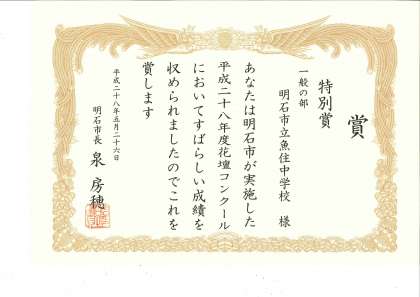 賞
特別賞
一般の部
明石市立魚住中学校　様
あなたは明石市が実施した
平成二十八年度花壇コンクール
においてすばらしい成績を
収められましたのでこれを
賞します
平成二十八年五月二十六日
明石市長　泉　房穂